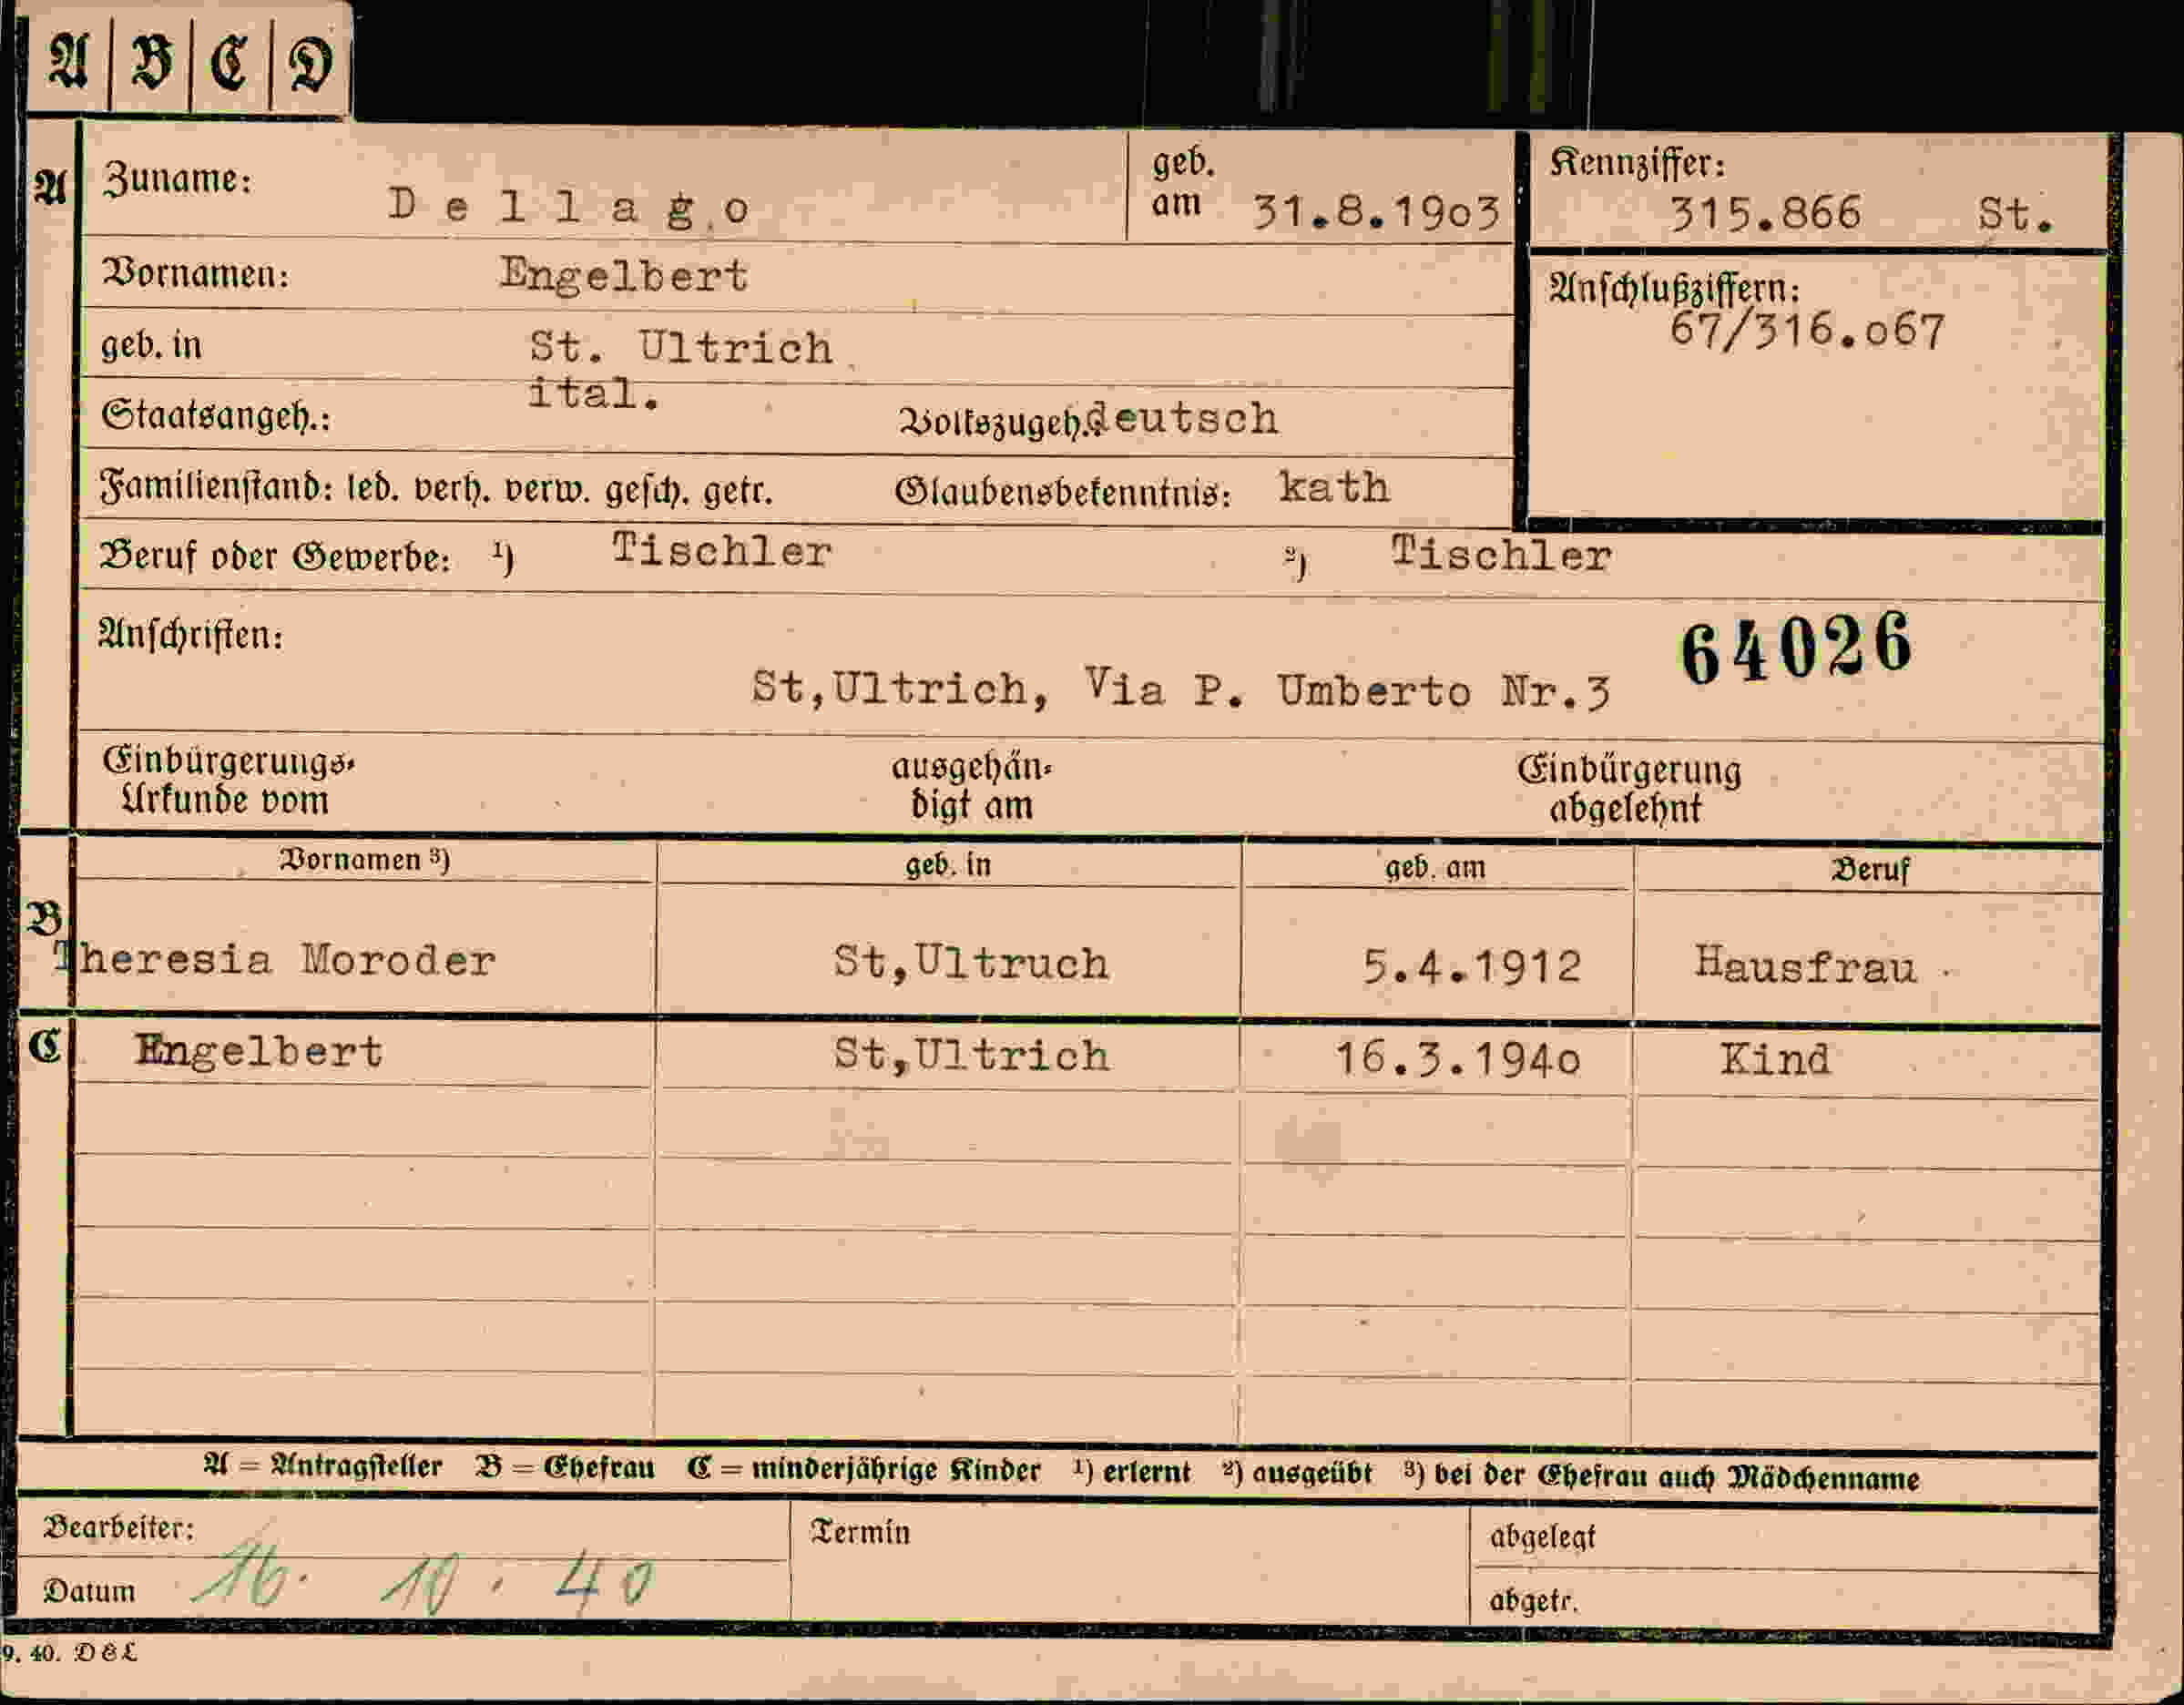 A B C D
A Zuname: Dellago geb. am 31.8.19o3 Kennziffer: 315.866 St.
Vornamen: Engelbert Anschlußziffern: 67/316.o67
geb. in St. Ultrich
Staatsangeh.: ital. Volkszugeh.: deutsch
Familienstand: led. verh. verw. gesch. getr. Glaubensbekenntnis: kath
Beruf oder Gewerbe: ¹) Tischler ²) Tischler
Anschriften: 64026
St,Ultrich, Via P. Umberto Nr.3
Einbürgerungs- ausgehän- Einbürgerung
Urkunde vom digt am abgelehnt
Vornamen ³) geb. in geb. am Beruf
B
Theresia Moroder St,Ultruch 5.4.1912 Hausfrau
C Engelbert St,Ultrich 16.3.194o Kind
A = Antragsteller B = Ehefrau C = minderjährige Kinder ¹) erlernt ²) ausgeübt ³) bei der Ehefrau auch Mädchenname
Bearbeiter: Termin abgelegt
Datum 16. 10. 40 abgetr.
9. 40. DEL